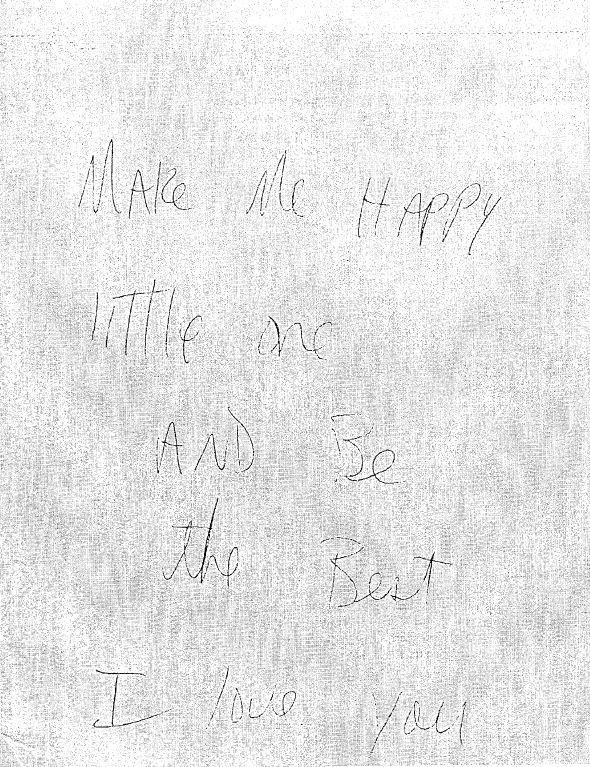 MAKe Me HAPPy
little one
AND Be
the Best
I love you